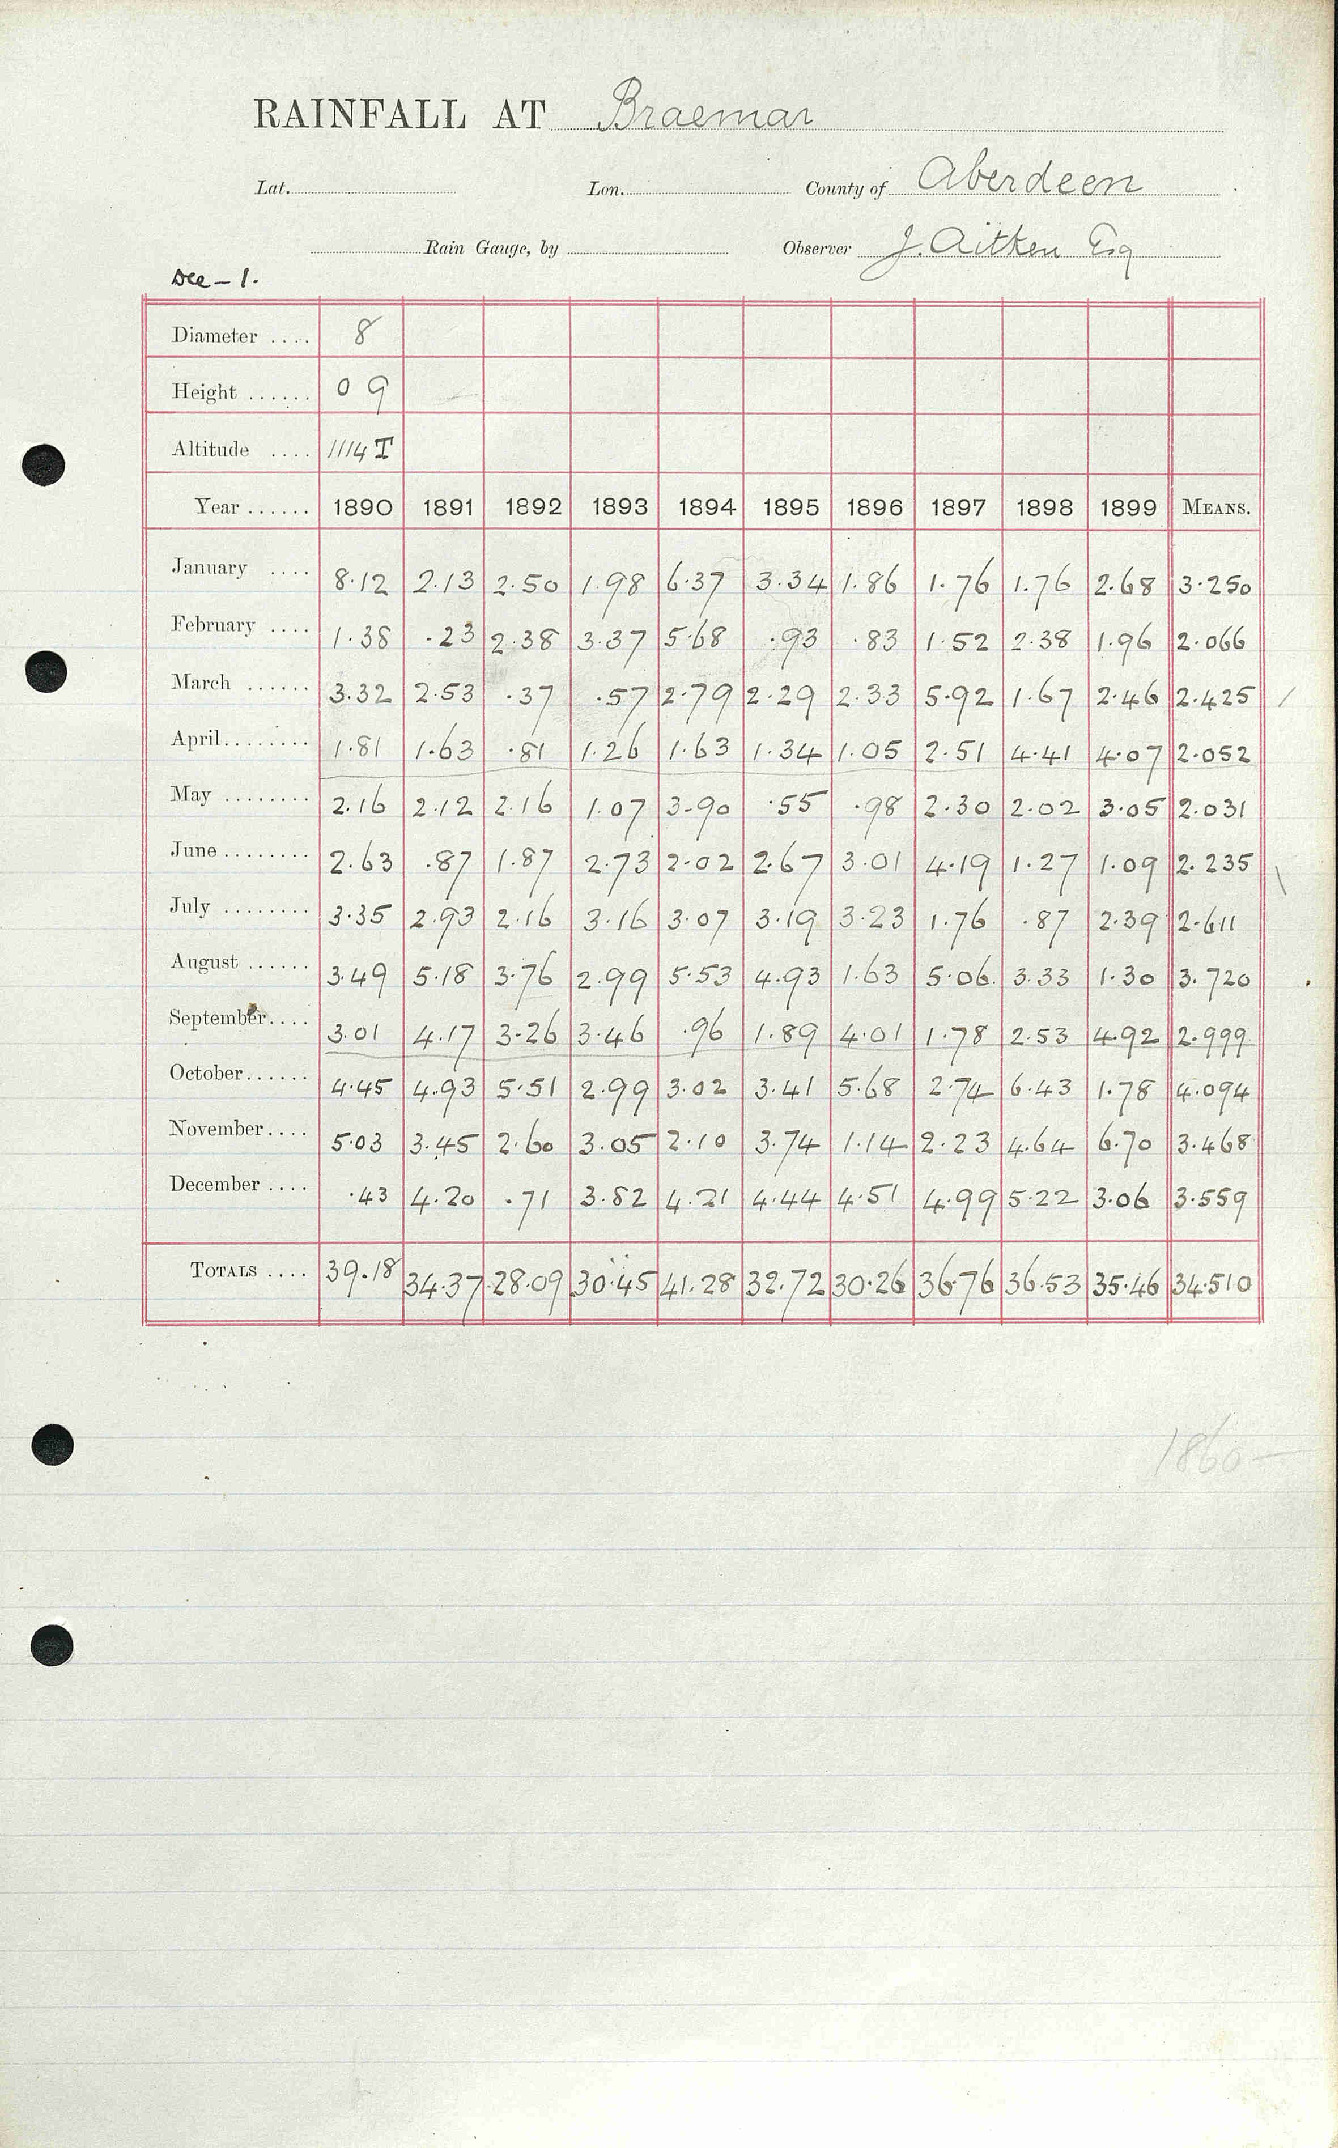 RAINFALL AT Braemar
Lat. Lon. County of Aberdeen
Rain Gauge, by Observer J. Aitken Esq
Dee - 1.
Diameter .... 8
Height ...... 0 9
Altitude .... 1114 T
Year ...... 1890 1891 1892 1893 1894 1895 1896 1897 1898 1899 MEANS.
January .... 8.12 2.13 2.50 1.98 6.37 3.34 1.86 1.76 1.76 2.68 3.250
February .... 1.38 .23 2.38 3.37 5.68 .93 .83 1.52 2.38 1.96 2.066
March ...... 3.32 2.53 .37 .57 2.79 2.29 2.33 5.92 1.67 2.46 2.425 /
April........ 1.81 1.63 .81 1.26 1.63 1.34 1.05 2.51 4.41 4.07 2.052
May ........ 2.16 2.12 2.16 1.07 3.90 .55 .98 2.30 2.02 3.05 2.031
June ........ 2.63 .87 1.87 2.73 2.02 2.67 3.01 4.19 1.27 1.09 2.235 \
July ........ 3.35 2.93 2.16 3.16 3.07 3.19 3.23 1.76 .87 2.39 2.611
August ...... 3.49 5.18 3.76 2.99 5.53 4.93 1.63 5.06 3.33 1.30 3.720
September.... 3.01 4.17 3.26 3.46 .96 1.89 4.01 1.78 2.53 4.92 2.999
October...... 4.45 4.93 5.51 2.99 3.02 3.41 5.68 2.74 6.43 1.78 4.094
November.... 5.03 3.45 2.60 3.05 2.10 3.74 1.14 2.23 4.64 6.70 3.468
December .... .43 4.20 .71 3.82 4.21 4.44 4.51 4.99 5.22 3.06 3.559
TOTALS .... 39.18 34.37 28.09 30.45 41.28 32.72 30.26 36.76 36.53 35.46 34.510
1860-